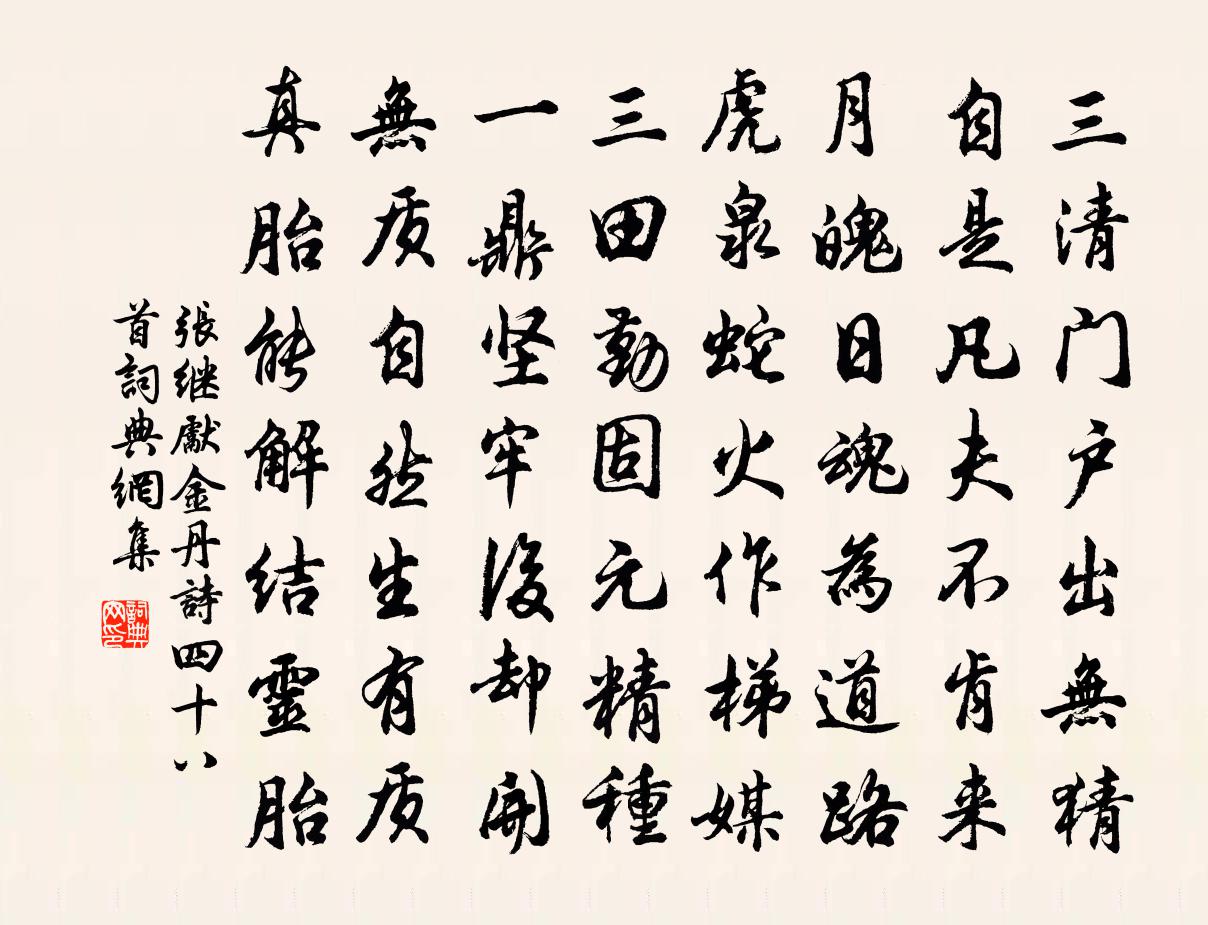 三清门户出無猜
自是凡夫不肯来
月魄日魂為道路
虎泉蛇火作梯媒
三田勤固元精種
一鼎坚牢後却開
無质自然生有质
真胎能解结靈胎
張继獻金丹詩四十八
首詞典網集
詞典
网印